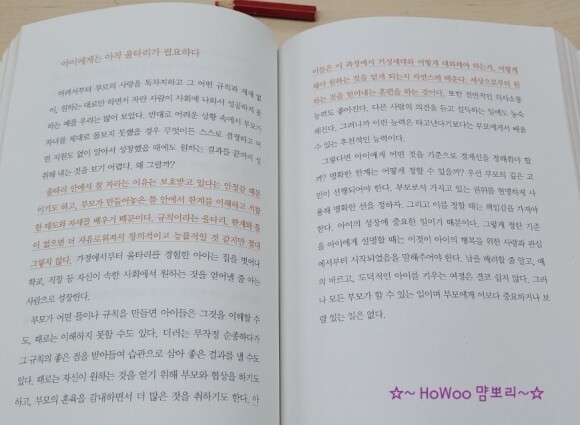 아이에게는 아직 울타리가 필요하다
어려서부터 부모의 사랑을 독차지하고 그 어떤 규칙과 제재 없
이, 원하는 대로만 하면서 자란 사람이 사회에 나와서 성공하지 못
하는 예를 우리는 많이 보았다. 반대로 어려운 상황 속에서 부모가
자녀를 제대로 돌보지 못했을 경우 무엇이든 스스로 결정하고 어
떤 지원도 없이 알아서 성장했을 때에도 원하는 결과를 끝까지 성
취해 내는 것을 보기 어렵다. 왜 그럴까?
울타리 안에서 잘 자라는 이유는 보호받고 있다는 안정감 때문
이기도 하고, 부모가 만들어놓은 틀 안에서 한계를 이해하고 적절
한 태도와 자세를 배우기 때문이다. 규칙이라는 울타리, 한계와 틀
이 없으면 더 자유로워져서 창의적이고 능률적일 것 같지만 결코
그렇지 않다. 가정에서부터 울타리를 경험한 아이는 집을 벗어나
학교, 직장 등 자신이 속한 사회에서 원하는 것을 얻어낼 줄 아는
사람으로 성장한다.
부모가 어떤 틀이나 규칙을 만들면 아이들은 그것을 이해할 수
도, 때로는 이해하지 못할 수도 있다. 더러는 무작정 순종하다가
그 규칙의 좋은 점을 받아들여 습관으로 삼아 좋은 결과를 낼 수도
있다. 때로는 자신이 원하는 것을 얻기 위해 부모와 협상을 하기도
하고, 부모의 훈육을 감내하면서 더 많은 것을 취하기도 한다. 아
이들은 이 과정에서 기성세대와 어떻게 대화해야 하는지, 어떻게
해야 원하는 것을 얻게 되는지 자연스레 배운다. 세상으로부터 원
하는 것을 얻어내는 훈련을 하는 것이다. 또한 전반적인 의사소통
능력도 좋아진다. 다른 사람의 의견을 듣고 설득하는 일에도 능숙
해진다. 그러니까 이런 능력은 타고난다기보다는 부모에게서 배울
수 있는 후천적인 능력이다.
그렇다면 아이에게 어떤 것을 기준으로 경계선을 정해줘야 할
까? 명확한 한계는 어떻게 정할 수 있을까? 우선 부모의 깊은 고
민이 선행되어야 한다. 부모로서 가지고 있는 권위를 현명하게 사
용해 명확한 선을 정하자. 그리고 이를 정할 때는 책임감을 가져야
한다. 아이의 성장에 중요한 일이기 때문이다. 그렇게 정한 기준
을 아이에게 설명할 때는 이것이 아이의 행복을 위한 사랑과 관심
에서부터 시작되었음을 말해주어야 한다. 남을 배려할 줄 알고, 예
의 바르고, 도덕적인 아이를 키우는 여정은 결코 쉽지 않다. 그러
나 모든 부모가 할 수 있는 일이며 부모에게 이보다 중요하거나 보
람 있는 일은 없다.
☆~ HoWoo 먐뽀리~☆